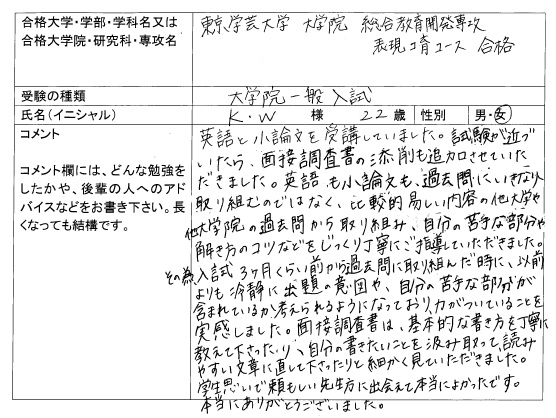 合格大学・学部・学科名又は
合格大学院・研究科・専攻名
東京学芸大学 大学院 総合教育開発専攻
表現教育コース 合格
受験の種類
大学院一般入試
氏名(イニシャル)
K.W 様 22歳 性別 男・女
コメント
コメント欄には、どんな勉強を
したかや、後輩の人へのアド
バイスなどをお書き下さい。長
くなっても結構です。
英語と小論文を受講していました。試験が近づ
いたら、面接調査書の添削も追加させていた
だきました。英語も小論文も、過去問にいきなり
取り組むのではなく、比較的易しい内容の他大学や
他大学院の過去問から取り組み、自分の苦手な部分や
解き方のコツなどをじっくり丁寧にご指導していただきました。
その為入試3ヶ月くらい前から過去問に取り組んだ時に、以前
よりも冷静に出題の意図や、自分の苦手な部分がが
含まれているか考えられるようになっており、力がついていることを
実感しました。面接調査書は、基本的な書き方を丁寧に
教えて下さったり、自分の書きたいことを汲み取って、読み
やすい文章に直して下さったりと細かく見ていただきました。
学生思いで頼もしい先生方に出会えて本当によかったです。
本当にありがとうございました。